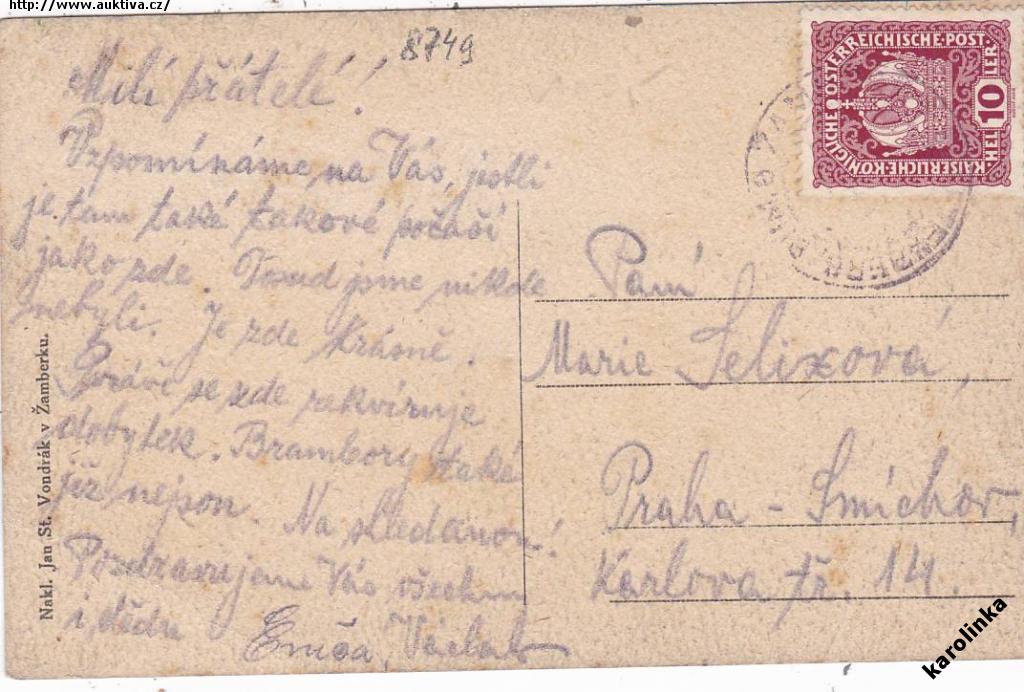 http://www.auktiva.cz/
8749
Milí přátelé!
Vzpomínáme na Vás, jestli
je tam také takové počasí
jako zde. Posud jsme nikde
nebyli. Je zde krásně.
Právě se zde rekvíruje
dobytek. Brambory také
již nejsou. Na shledanou!
Pozdravujeme Vás všechny
i dědu
Emča, Václav
Nakl. Jan St. Vondrák v Žamberku.
KAISERLICHE KÖNIGLICHE ÖSTERREICHISCHE POST
10 HELLER
Paní
Marie Selixová,
Praha - Smíchov,
Karlova tř. 14.
karolinka